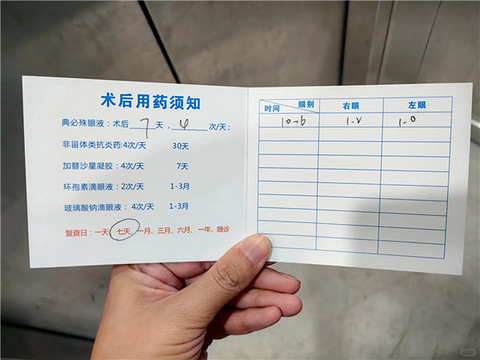 术后用药须知
典必殊眼液：术后 7 天， 4 次/天；
非甾体类抗炎药:4次/天 30天
加替沙星凝胶：4次/天 7天
环孢素滴眼液：2次/天 1-3月
玻璃酸钠滴眼液：4次/天 1-3月
复查日：一天 七天 一月、三月、六月、一年、随诊
时间 眼别 右眼 左眼
10-6 1-2 1-0